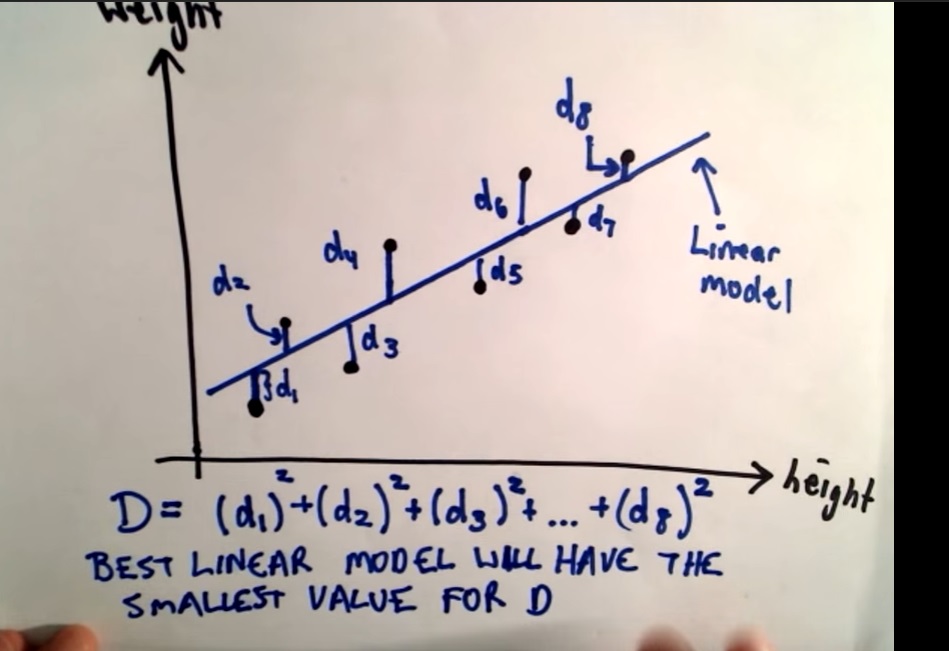 weight
d8
d6
d7
Linear
model
d4
d5
d2
d3
d1
height
D = (d1)²+(d2)²+(d3)²+ ... +(d8)²
BEST LINEAR MODEL WILL HAVE THE
SMALLEST VALUE FOR D